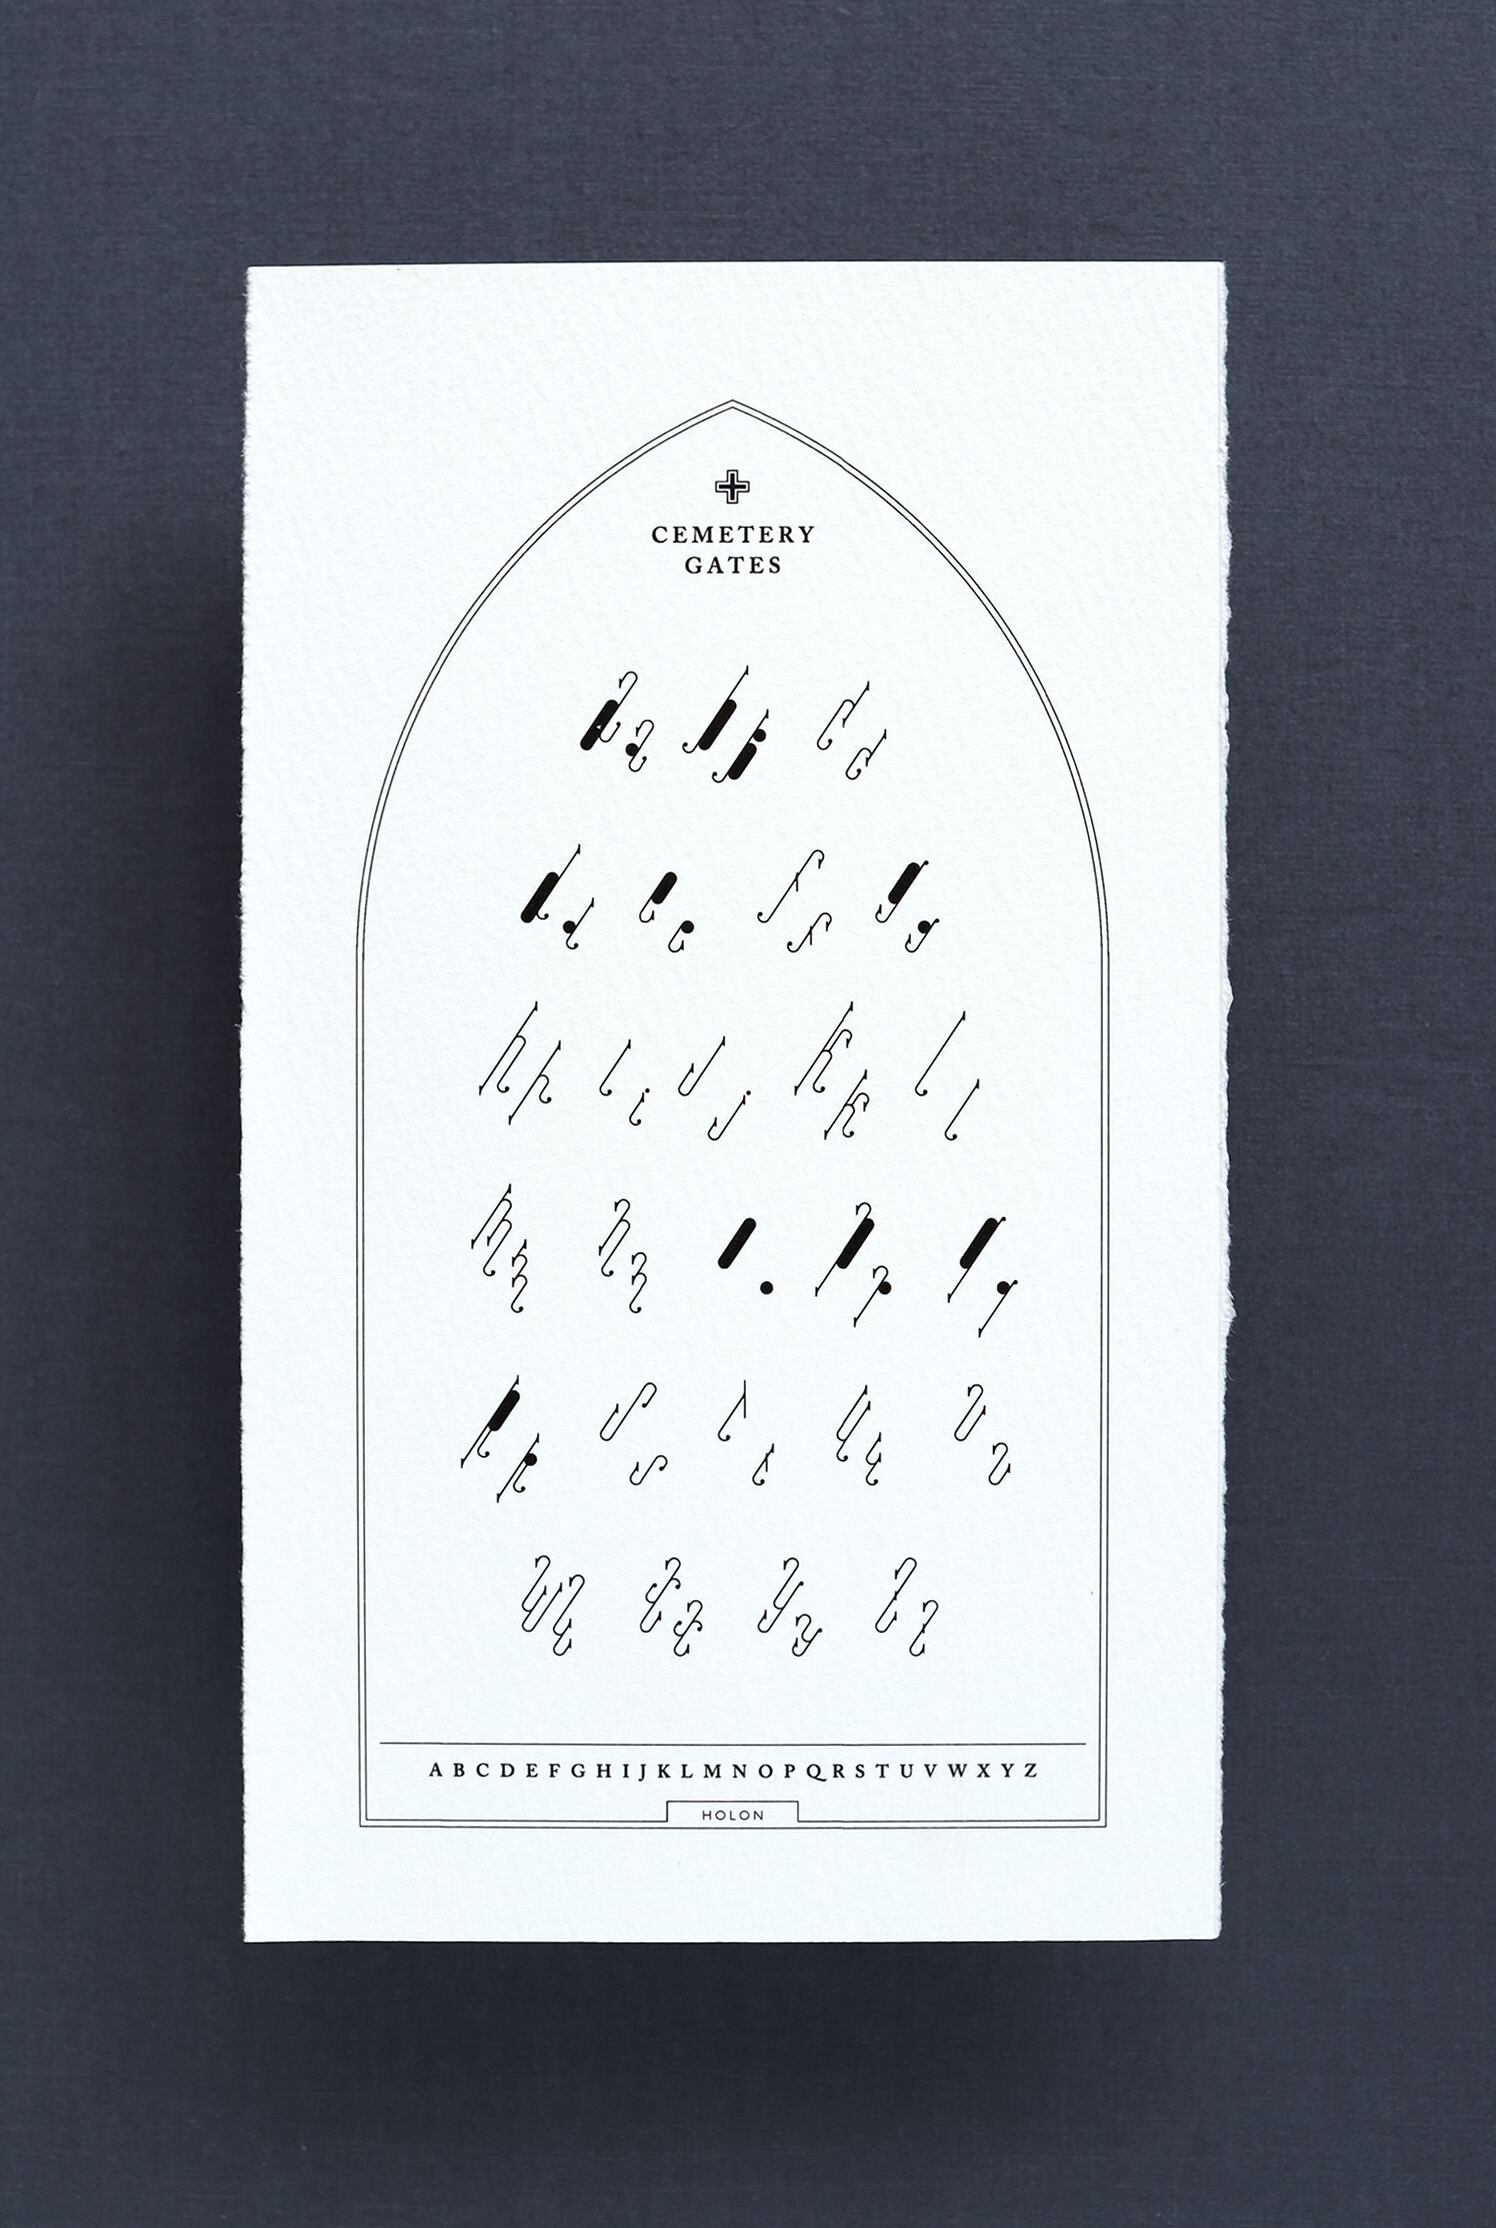 CEMETERY
GATES
Aa Bb Cc
Dd Ee Ff Gg
Hh Ii Jj Kk Ll
Mm Nn Oo Pp Qq
Rr Ss Tt Uu Vv
Ww Xx Yy Zz
A B C D E F G H I J K L M N O P Q R S T U V W X Y Z
HOLON